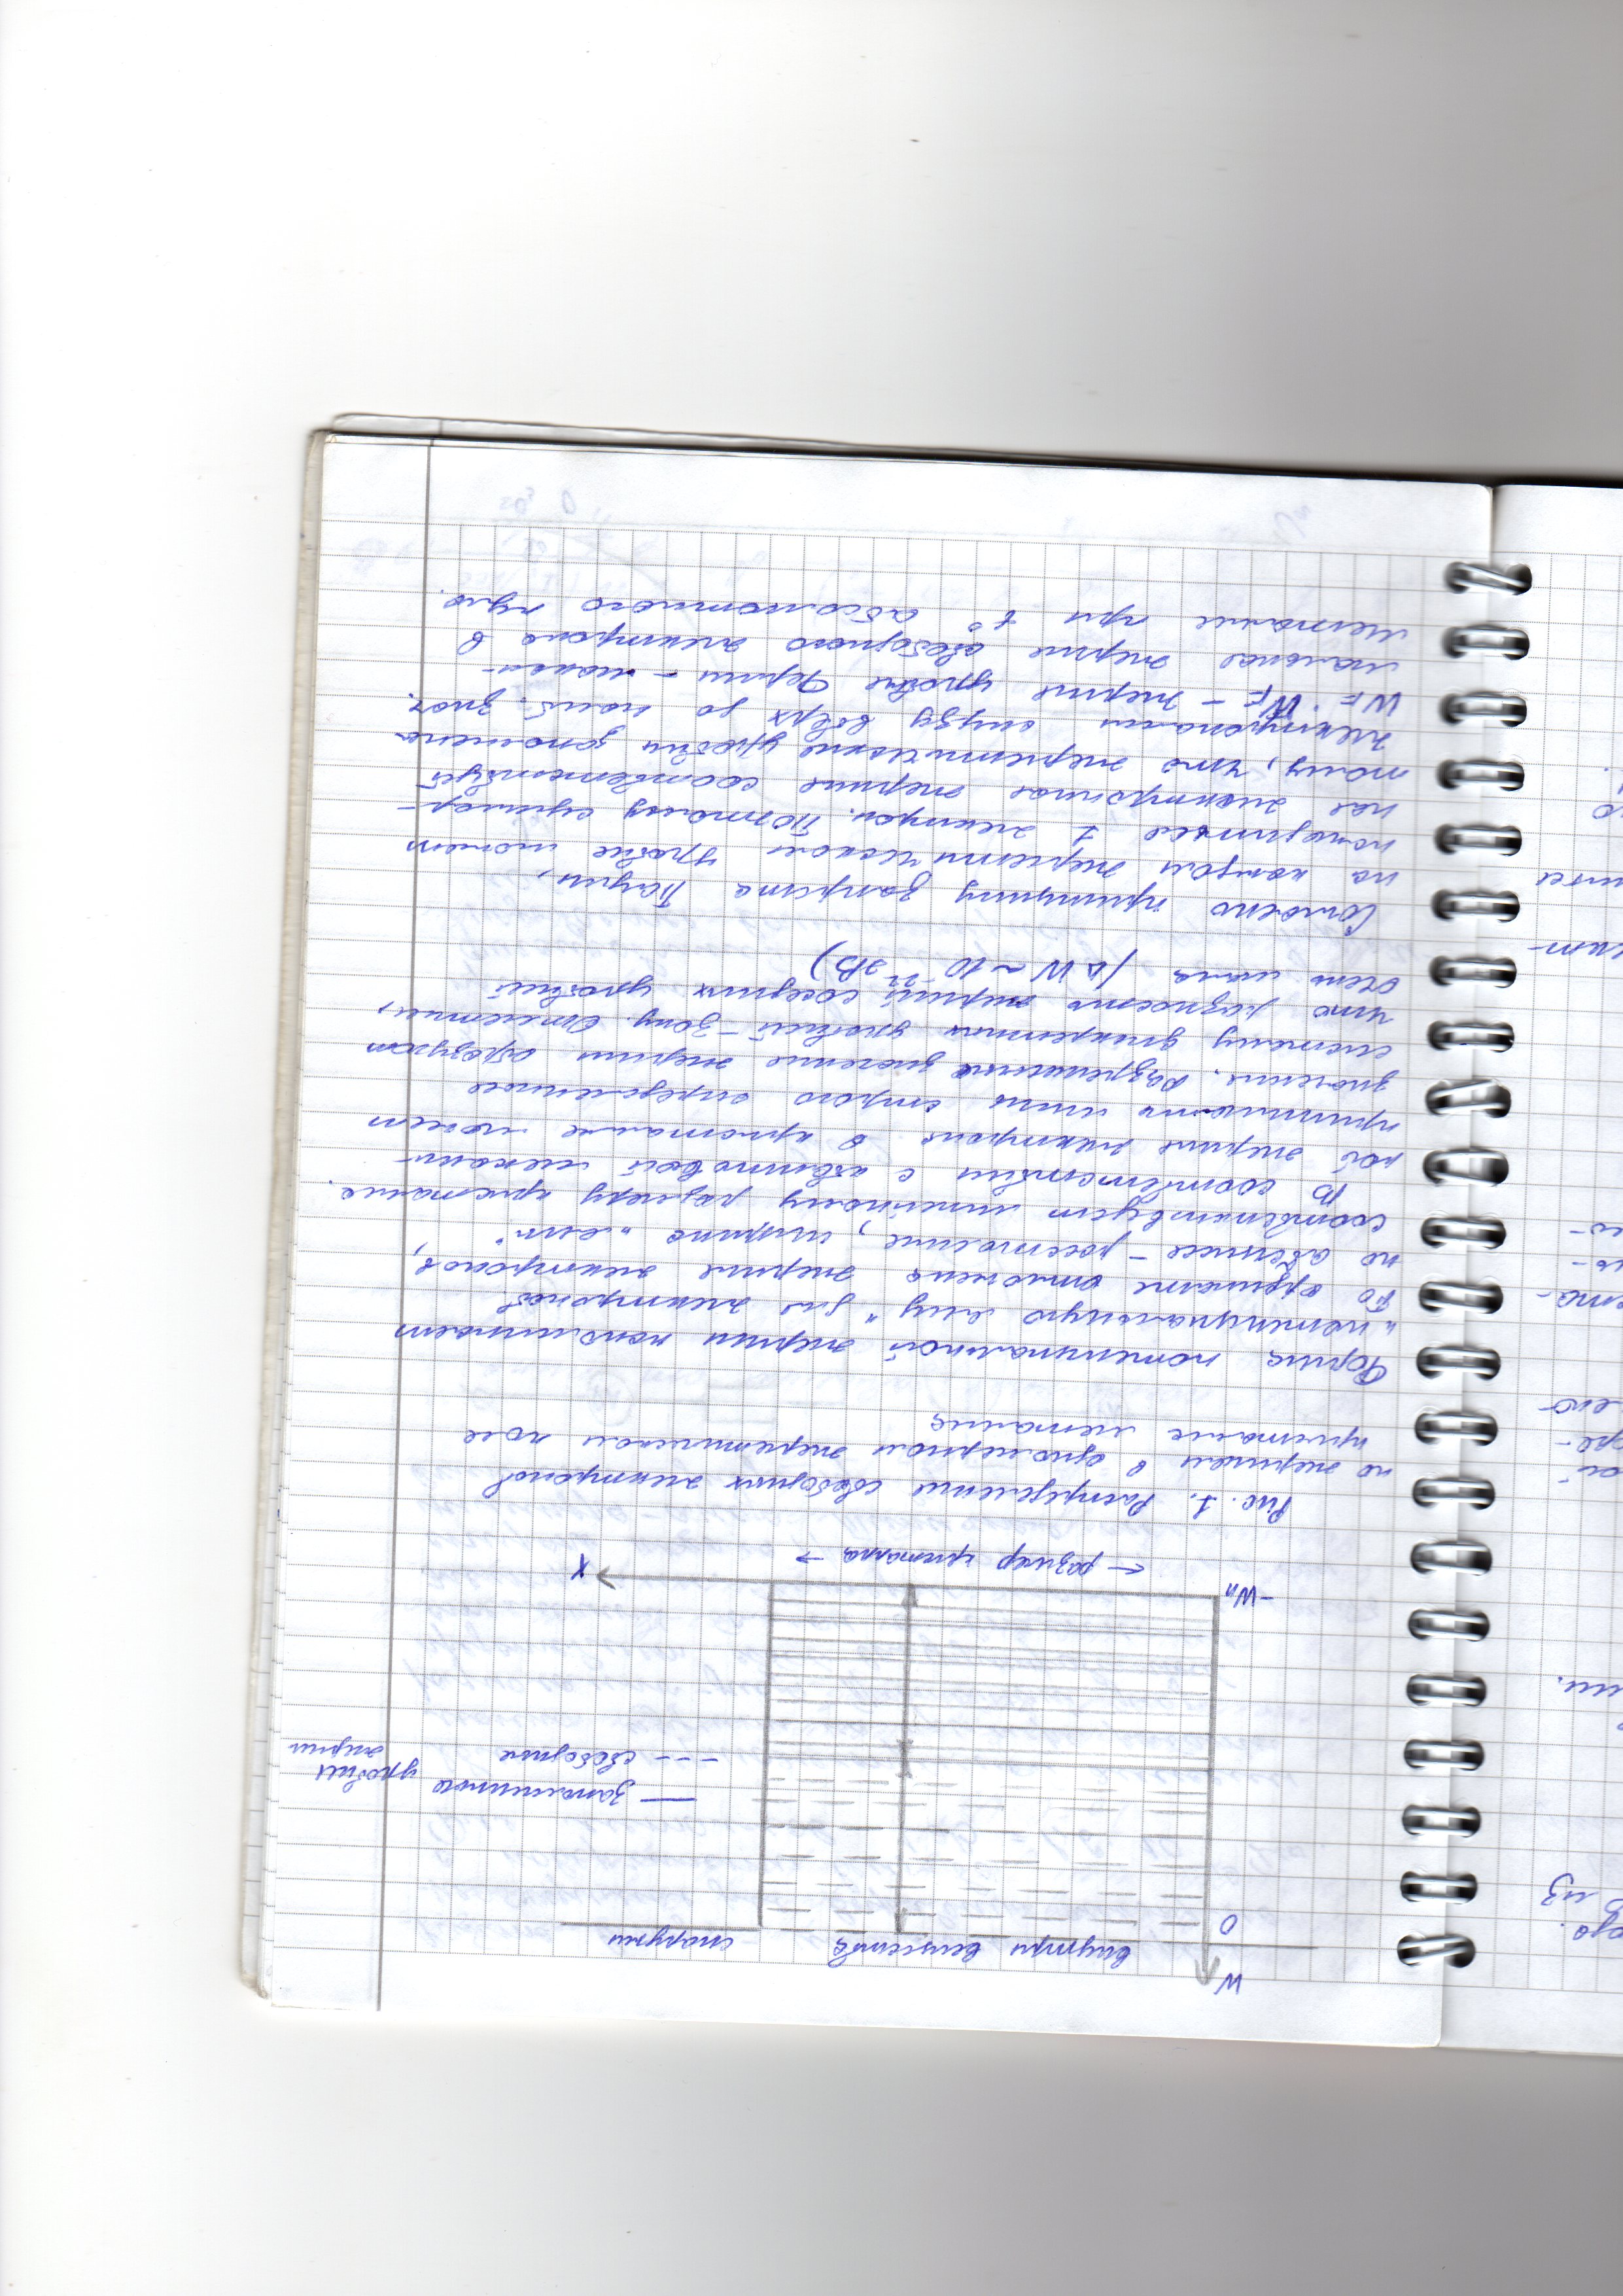 ода.
из
ми.
ой
оре-
ста-
ль-
ект-
W
внутри вещества
снаружи
0
— заполненное уровни
--- свободные энергии
-Wп
← размер кристалла →
X
Рис. 1. Распределение свободных электронов
по энергиям в одномерном энергетическом поле
кристалле металла
Форма потенциальной энергии напоминает
"потенциальную яму" для электронов
По ординате отложена энергия электронов,
по абсциссе - расстояние, ширина "ямы"
соответствует линейному размеру кристалла.
В соответствии с квантовой механи-
кой энергия электрона в кристалле может
принимать лишь строго определенное
значение. Разрешенные значение энергии образуют
систему дискретных уровней - зону. Отметим,
что разность энергий соседних уровней
очень мала (ΔW ~ 10⁻²² эВ)
Согласно принципу запрета Паули,
на каждом энергетическом уровне может
находиться 1 электрон. Поэтому суммар-
ная электронная энергия соответствует
тому, что энергетические уровни заполнены
электронами снизу вверх до наиб. знач.
WF. WF - энергия уровня Ферми - макси-
мальная энергия свободного электрона в
металле при t° абсолютного нуля.